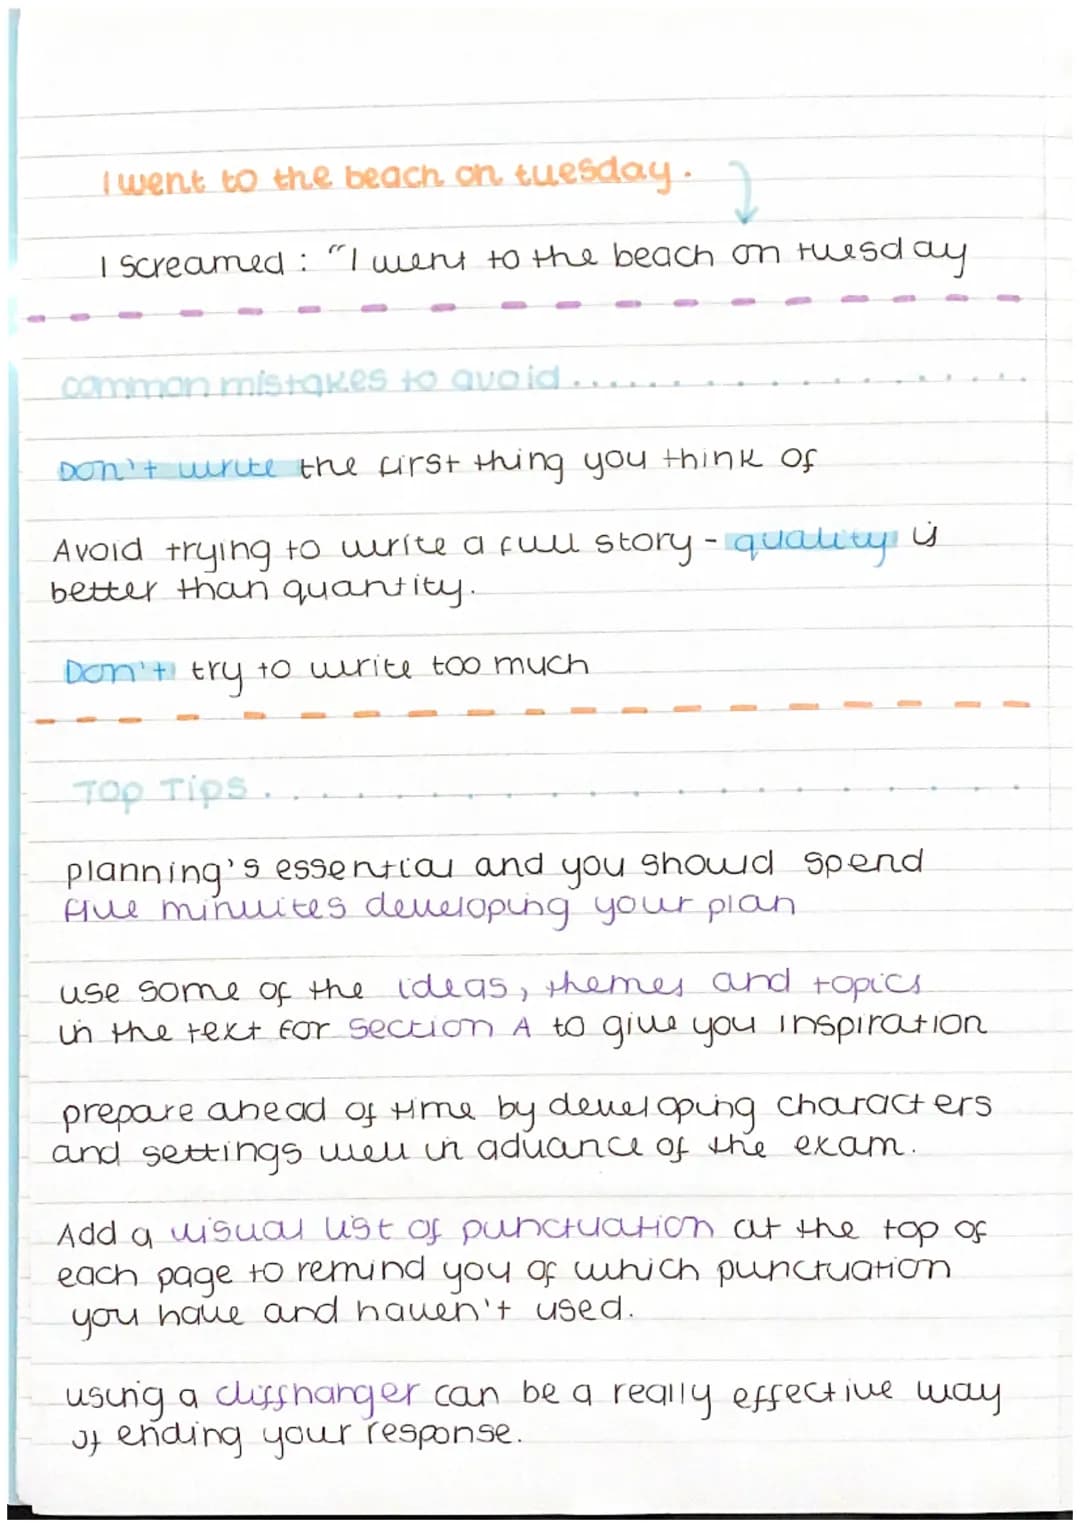 I went to the beach on tuesday.
I screamed : "I went to the beach on tuesday
common mistakes to avoid ..................
Don't write the first thing you think of
Avoid trying to write a full story - quality is
better than quantity.
Don't try to write too much
Top Tips ..................
planning's essential and you should spend
five minuites developing your plan
use some of the ideas, themes and topics
in the text for section A to give you inspiration
prepare ahead of time by developing characters
and settings well in advance of the exam.
Add a visual list of punctuation at the top of
each page to remind you of which punctuation
you have and haven't used.
using a cliffhanger can be a really effective way
of ending your response.